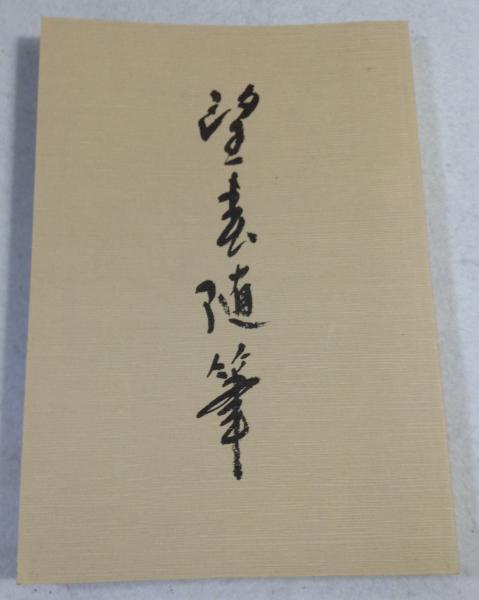 望春随筆